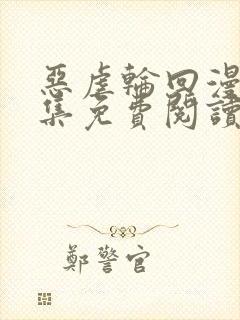 惡虐輪回漫
集免費閱讀
鄭警官